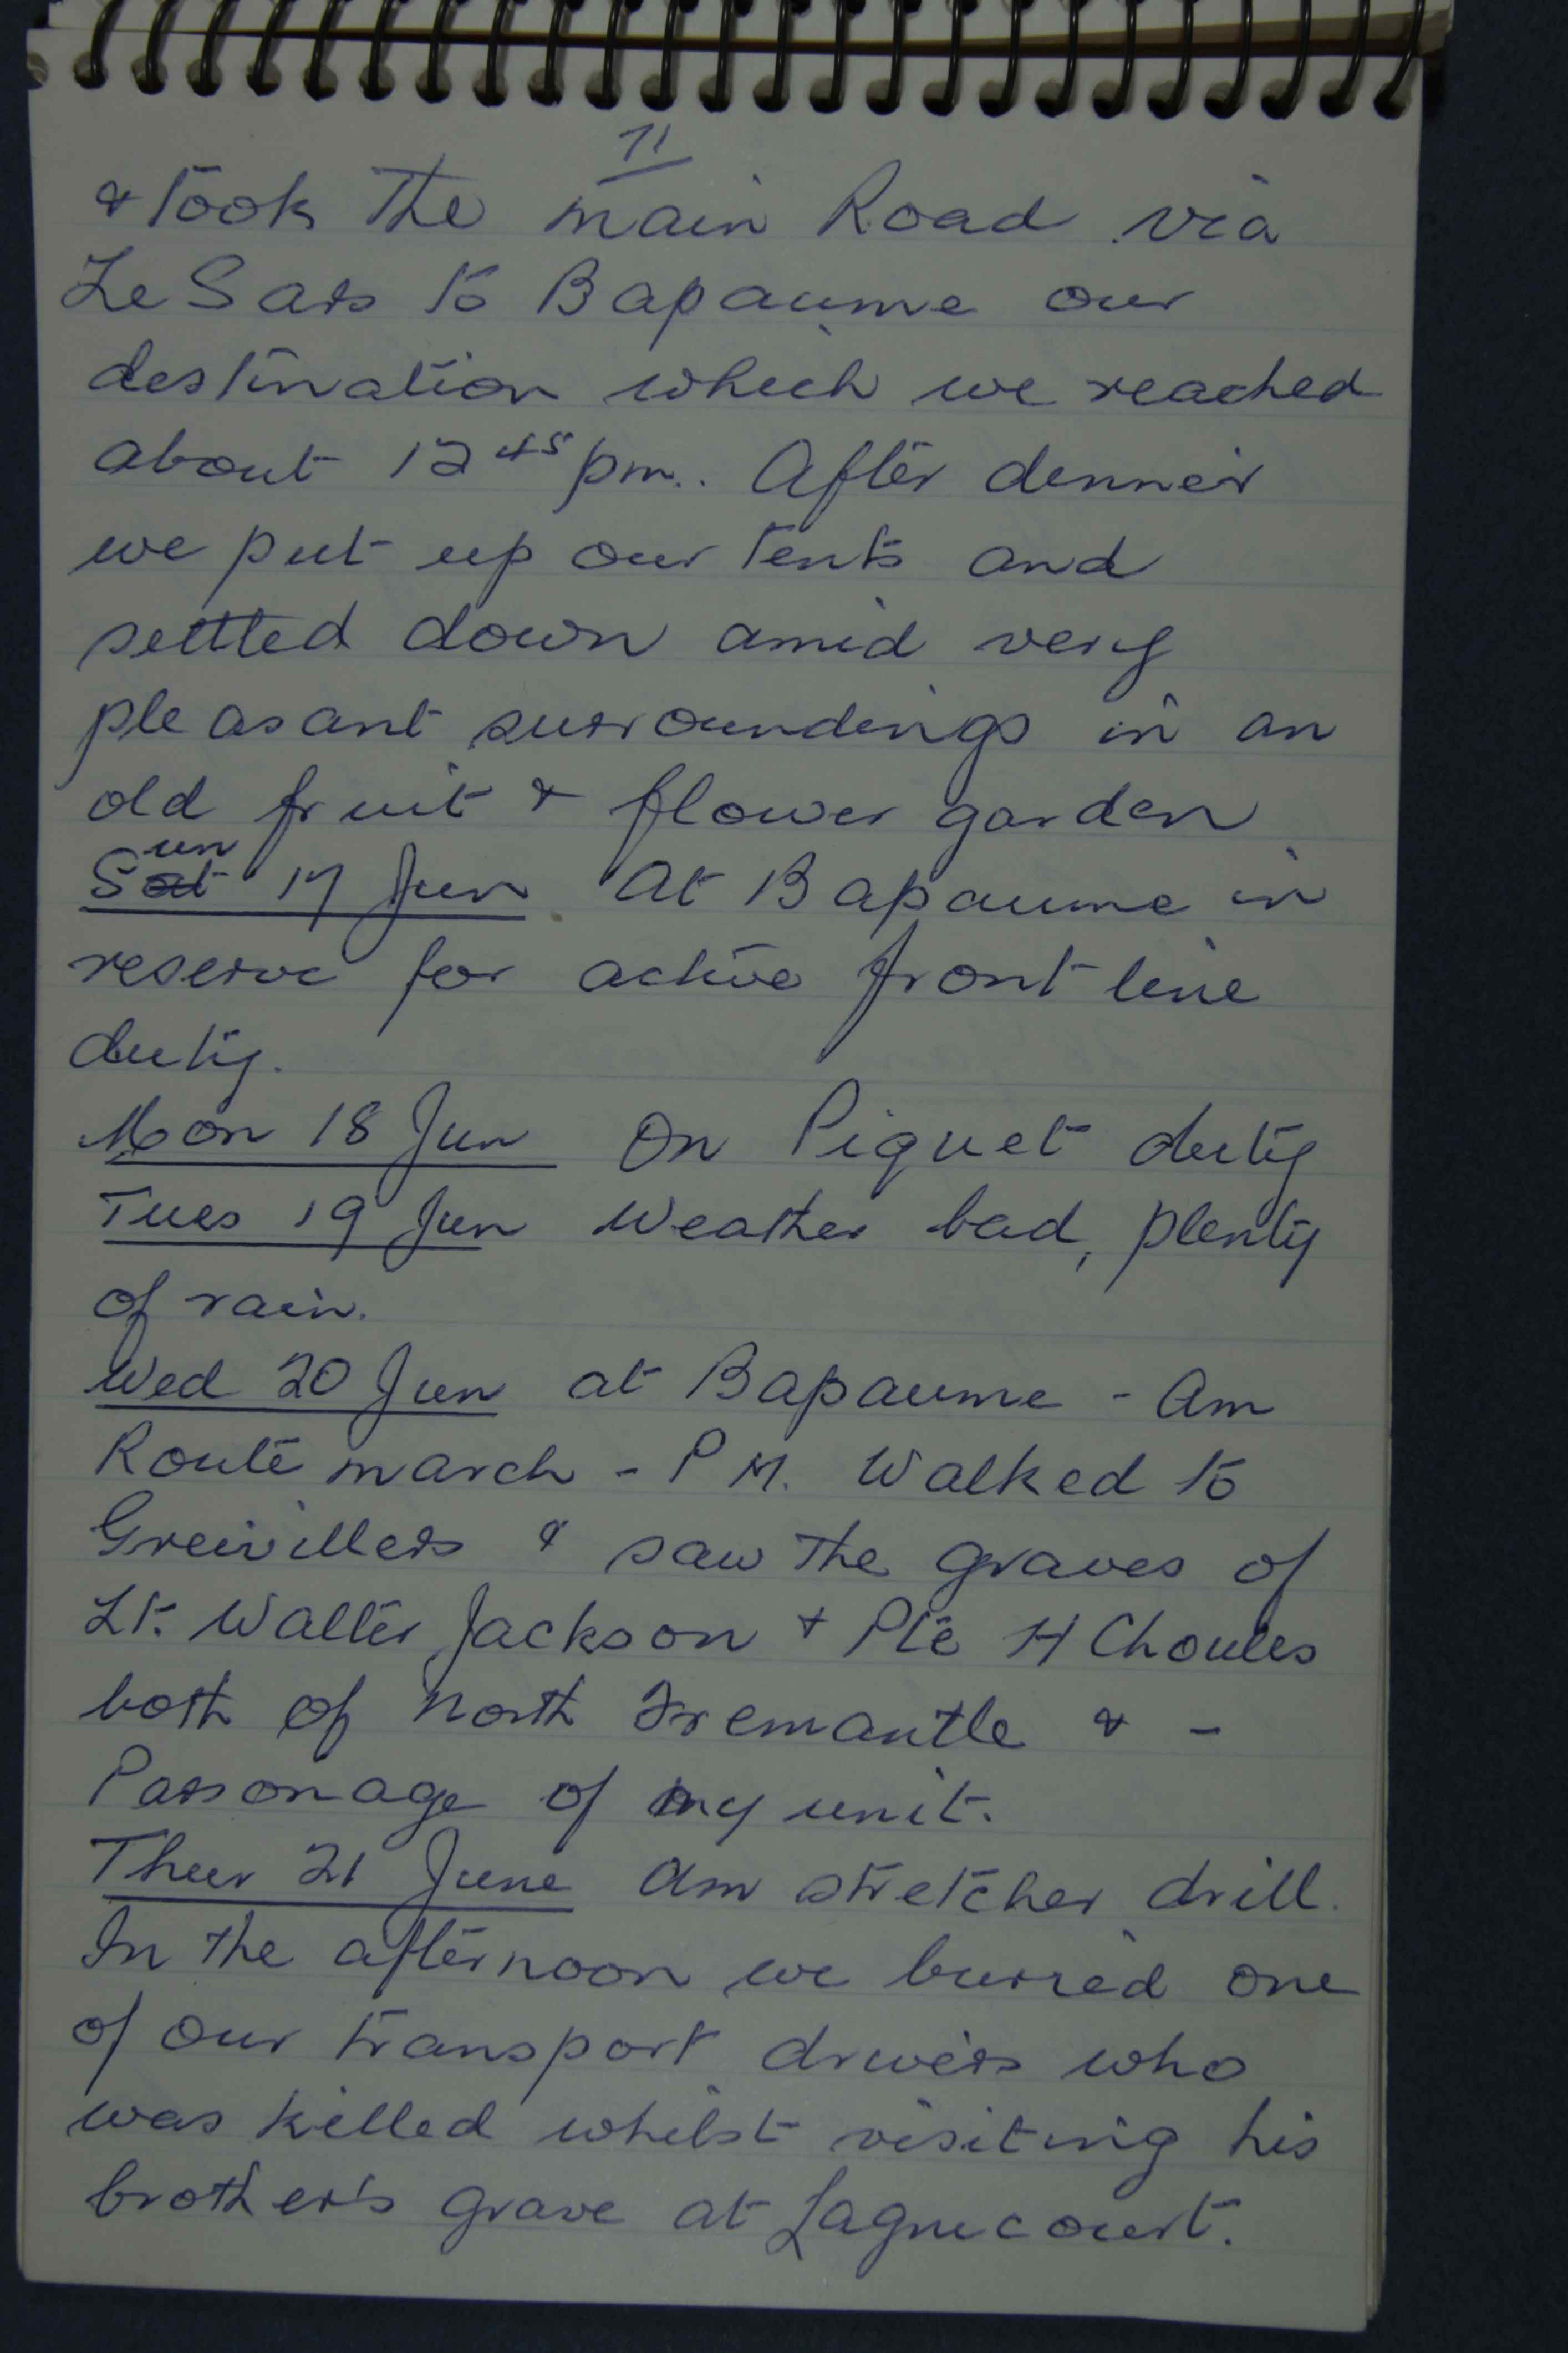 71
& took the main Road via
Le Sars to Bapaume our
destination which we reached
about 12 45 pm.. After dinner
we put up our tents and
settled down amid very
pleasant surroundings in an
old fruit & flower garden
un
Sat 17 Jun At Bapaume in
reserve for active front line
duty.
Mon 18 Jun On Piquet duty
Tues 19 Jun Weather bad, plenty
of rain.
Wed 20 Jun at Bapaume - Am
Route march - P M. Walked to
Greivillers & saw the graves of
Lt. Walter Jackson + Pte H Choules
both of North Fremantle & -
Parsonage of my unit.
Thur 21 June Am stretcher drill.
In the afternoon we burried one
of our transport drivers who
was killed whilst visiting his
brother's grave at Lagnecourt.